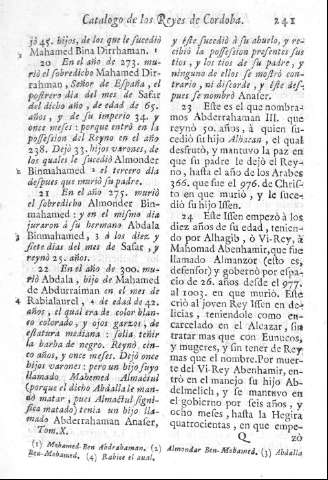 Catalogo de los Reyes de Cordoba. 241
jò 45. hijos, de los que le sucediò
Mahamed Bina Dirrhaman. 1
20 En el año de 273. mu-
riò el sobredicho Mahamed Dir-
rahman, Señor de España, el
postrero dia del mes de Safar
del dicho año, de edad de 65.
años, y de su imperio 34. y
once meses: porque entrò en la
possession del Reyno en el año
238. Dejò 33. hijos varones, de
los quales le sucediò Almonder
2 Binmahamed 2 el tercero dia
despues que muriò su padre.
21 En el año 275. muriò
el sobredicho Almonder Bin-
mahamed: y en el mismo dia
juraron à su hermano Abdala
3 Binmahamed, 3 à los diez y
siete dias del mes de Safar, y
reynò 25. años.
22 En el año de 300. mu-
riò Abdala, hijo de Mahamed
de Abdurraiman en el mes de
4 Rabialaurel, 4 de edad de 42.
años, el qual era de color blan-
co, colorado, y ojos garzos, de
estatura mediana: solia teñir
la barba de negro. Reynò cin-
co años, y once meses. Dejò once
hijos varones: pero un hijo suyo
llamado Mahemed Almactul
(porque el dicho Abdalla le man-
dò matar, pues Almactul signi-
fica matado) tenia un hijo lla-
mado Abderrahaman Anaser,
Tom.X.
y este sucediò à su abuelo, y re-
cibiò la possession presentes sus
tios, y los tios de su padre, y
ninguno de ellos se mostrò con-
trario, ni discorde, y este des-
pues se nombrò Anaser.
23 Este es el que nombra-
mos Abderrahaman III. que
reynò 50. años, à quien su-
cediò su hijo Alhacan, el qual
desfrutò, y mantuvo la paz en
que su padre le dejò el Rey-
no, hasta el año de los Arabes
366. que fue el 976. de Chris-
to en que muriò, y le suce-
diò su hijo Issen.
24 Este Issen empezò à los
diez años de su edad, tenien-
do por Alhagib, ò Vi-Rey, à
Mahomad Abenhamir, que fue
llamado Almanzor (esto es,
defensor) y gobernò por espa-
cio de 26. años desde el 977.
al 1003. en que muriò. Este
criò al joven Rey Issen en de-
licias, teniendole como en-
carcelado en el Alcazar, sin
tratar mas que con Eunucos,
y mugeres, y sin tener de Rey
mas que el nombre. Por muer-
te del Vi-Rey Abenhamir, en-
trò en el manejo su hijo Ab-
delmelich, y se mantuvo en
el gobierno por seis años, y
ocho meses, hasta la Hegira
quatrocientas, en que empe-
Q zò
(1) Mohamed-Ben Abdrahaman. (2) Almondar Ben-Mohamed. (3) Abdalla
Ben-Mohamed. (4) Rabiee el aual.